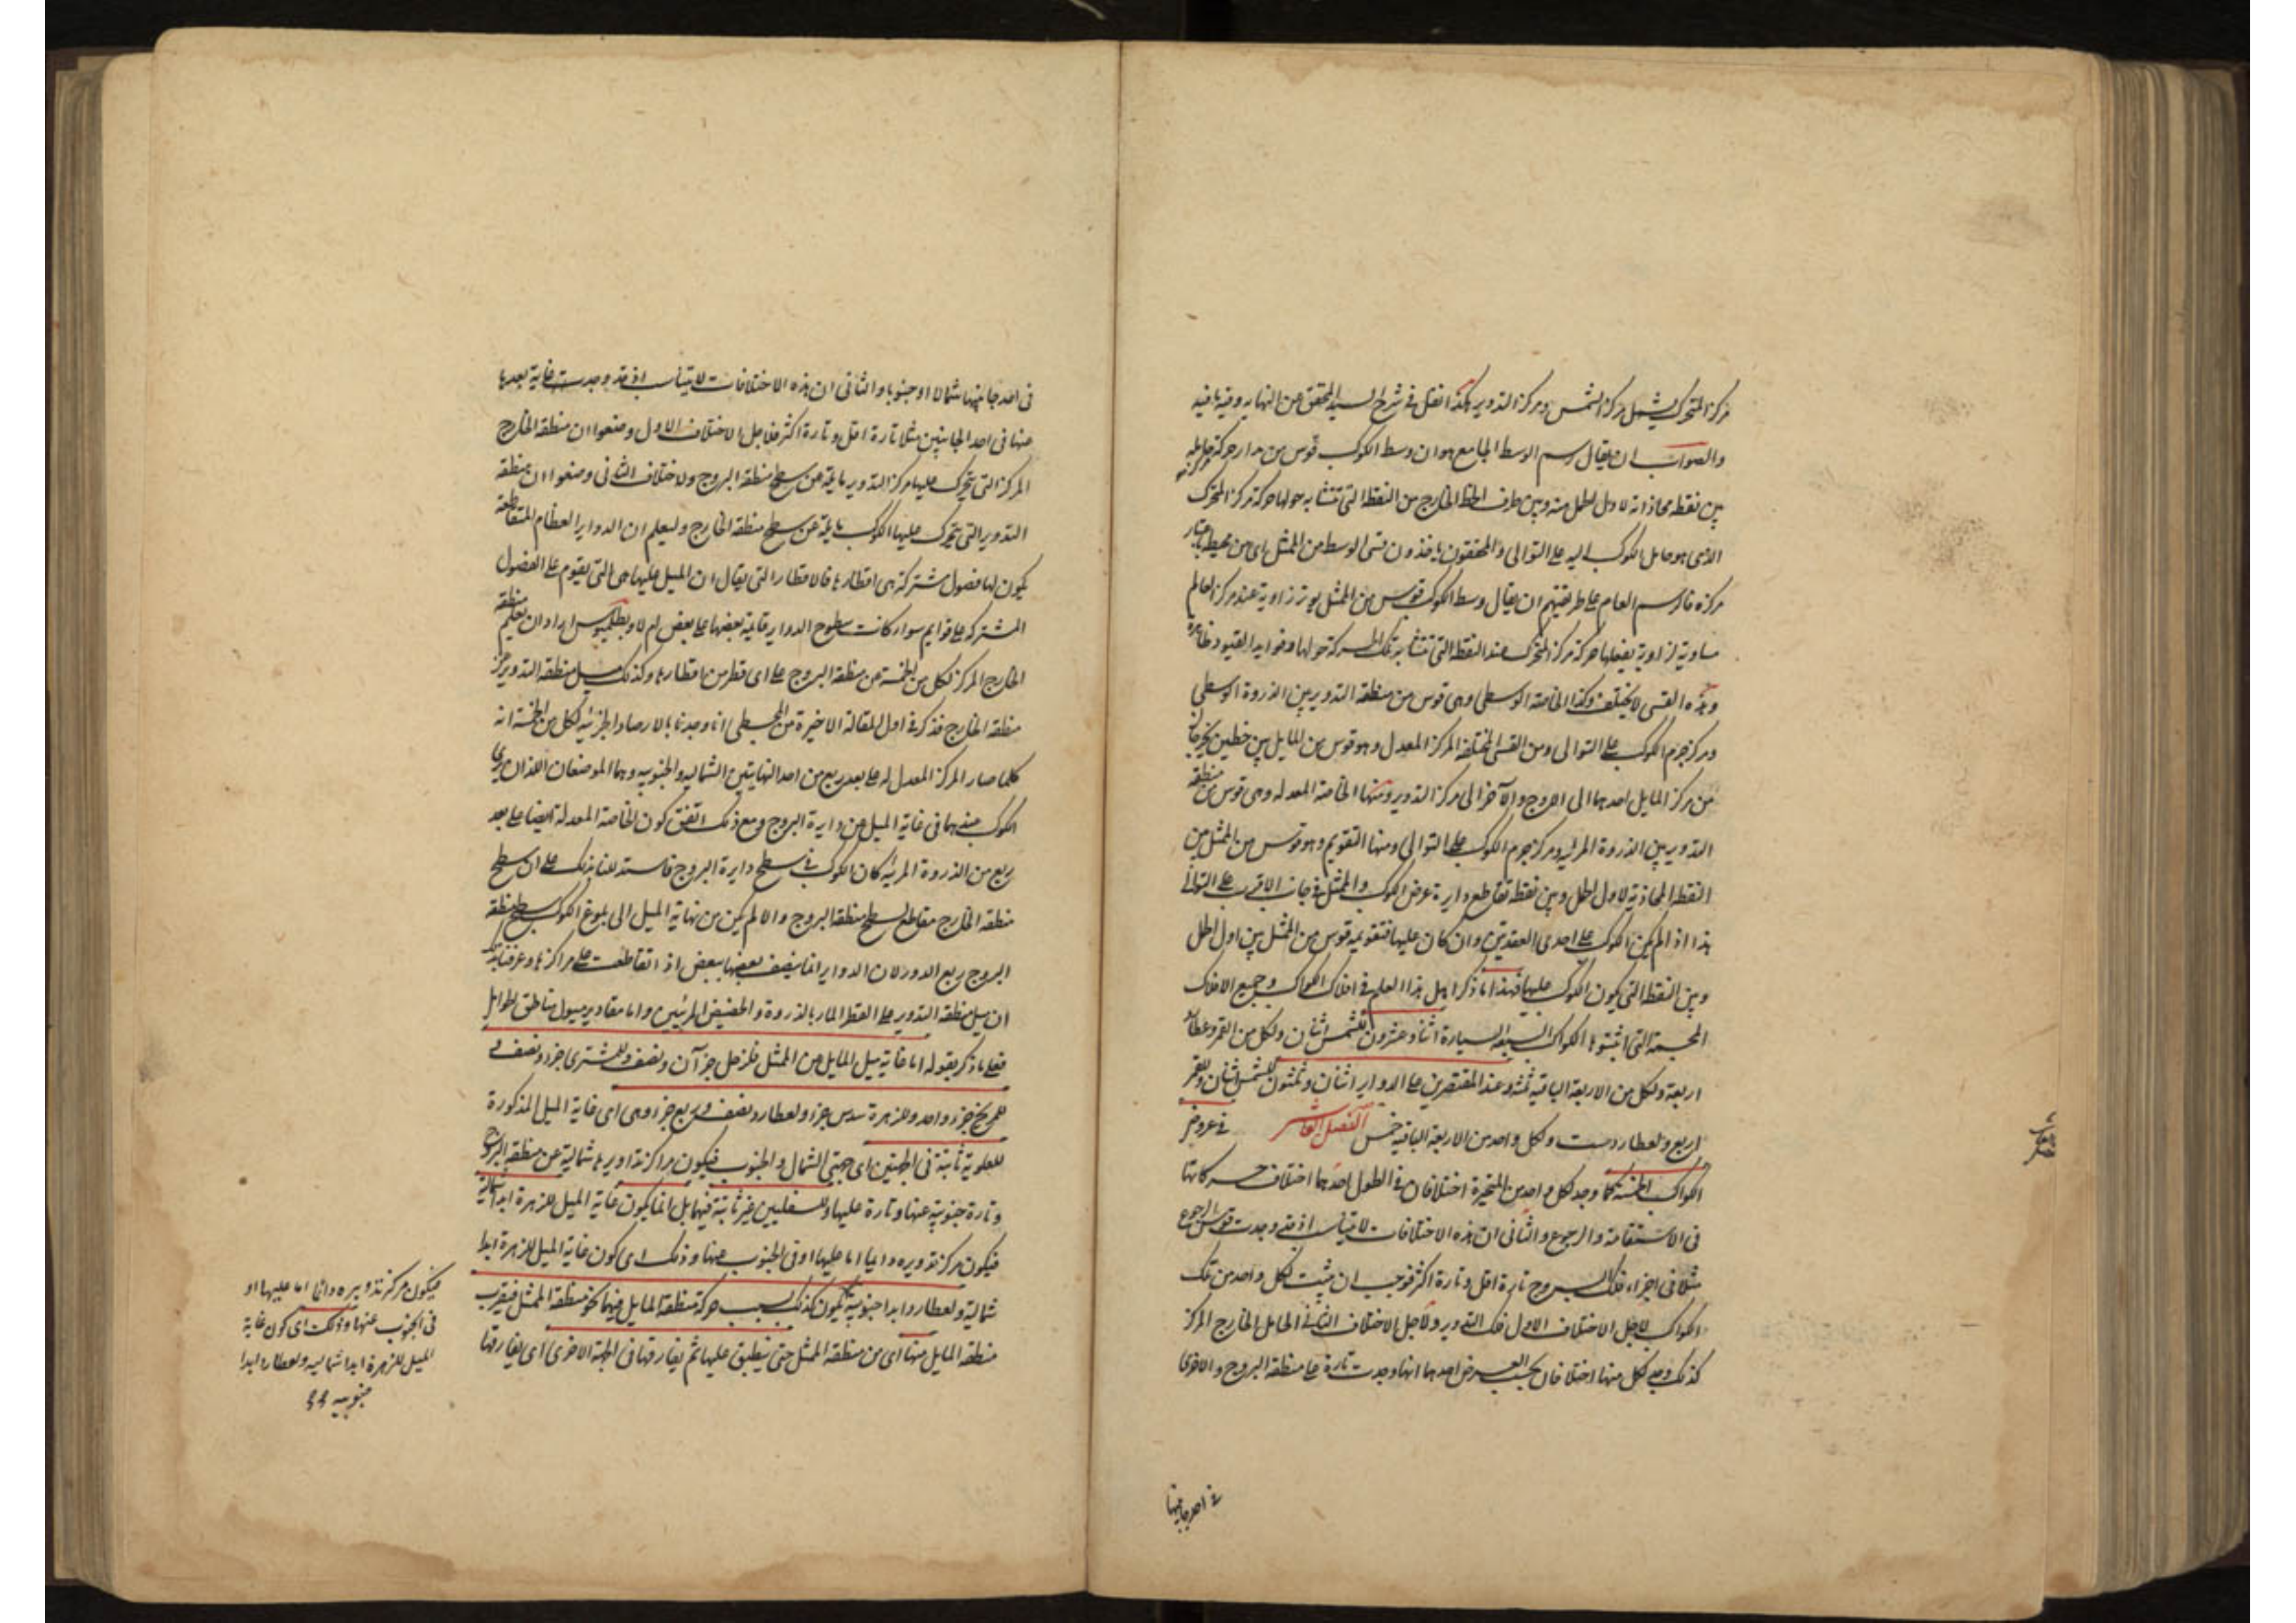 مركز المتحرك يشمل مركز الشمس ومركز التدوير هكذا نقل في شرح السيد المحقق من النهاية وفيه ما فيه
والصواب ان يقال رسم الوسط الجامع هو ان وسط الكوكب قوس من مدار حركة حامله
بين نقطة محاذاته لاول الحمل منه وبين طرف الخط الخارج من النقطة التي تتشابه حولها حركة مركز المتحرك
الذي هو حامل الكوكب اليه على التوالي والمحققون ياخذون قسى الوسط من الممثل اى من محيطه باعتبار
مركزه فالرسم العام على طريقتهم ان يقال وسط الكوكب قوس من الممثل يوتر زاوية عند مركز العالم
مساوية لزاوية يفعلها حركة مركز المتحرك عند النقطة التي تتشابه تلك الحركة حولها وفوايد القيود ظاهرة
وهذه القسى لا يختلف وكذا الخاصة الوسطى وهى قوس من منطقة التدوير بين الذروة الوسطى
ومركز جرم الكوكب على التوالى ومن القسى المختلفة المركز المعدل وهو قوس من المايل بين خطين يخرجان
من مركز المايل احدهما الى الاوج والآخر الى مركز التدوير ومنها الخاصة المعدلة وهى قوس من منطقة
التدوير بين الذروة المرئية ومركز جرم الكوكب على التوالى ومنها التقويم وهو قوس من الممثل بين
النقطة المحاذية لاول الحمل وبين نقطة تقاطع دايرة عرض الكوكب والممثل في جانب الاقرب على التوالى
هذا اذا لم يكن الكوكب على احدى العقدتين وان كان عليها فتقويمه قوس من الممثل بين اول الحمل
وبين النقطة التي يكون الكوكب عليها فهذا ما ذكر اهل هذا العلم في افلاك الكواكب وجميع الافلاك
المجسمة التي اثبتوها الكواكب السبعة السيارة اثنا وعشرون للشمس اثنان ولكل من القمر وعطارد
اربعة ولكل من الاربعة الباقية ثلثة وعند المقتصرين على الدواير اثنان وثلثون للشمس اثنان وللقمر
اربع ولعطارد ست ولكل واحد من الاربعة الباقية خمس الفصل العاشر في عروض
الكواكب الخمسة كما وجد لكل واحد من المتحيرة اختلافان في الطول احدهما اختلاف حركاتها
فى الاستقامة والرجوع والثانى ان هذه الاختلافات لا يتناسب اذ قد وجدت قوس الرجوع
مثلا فى اجزاء فلك البروج تارة اقل وتارة اكثر فوجب ان يثبت لكل واحد من تلك
الكواكب لاجل الاختلاف الاول فلك التدوير ولاجل الاختلاف الثانى الحامل الخارج المركز
كذلك وجد لكل منها اختلافان بحسب العرض احدهما انها وجدت تارة على منطقة البروج والاخرى
في احد جانبيها
فى احد جانبيها شمالا او جنوبا والثانى ان هذه الاختلافات لا يتناسب اذ قد وجدت غاية بعدها
عنها فى احد الجانبين مثلا تارة اقل وتارة اكثر فلاجل الاختلاف الاول وضعوا ان منطقة الخارج
المركز التى يتحرك عليها مركز التدوير مايلة عن سطح منطقة البروج ولاختلاف الثانى وضعوا ان منطقة
التدوير التى يتحرك عليها الكوكب مايلة عن سطح منطقة الخارج وليعلم ان الدواير العظام المتقاطعة
يكون لها فصول مشتركة هى اقطارها فالاقطار التى يقال ان الميل عليها هى التى يقوم على الفصول
المشتركة على قوايم سواء كانت سطوح الدواير قائمة بعضها على بعض ام لا وبطلميوس اراد ان يعلم ميل منطقة
الخارج المركز لكل من الخمسة عن منطقة البروج على اى قطر من اقطارها وكذلك ميل منطقة التدوير عن
منطقة الخارج فذكر فى اول المقالة الاخيرة من المجسطى انا وجدنا بالارصاد الجزئية لكل من الخمسة انه
كلما صار المركز المعدل له على بعد ربع من احد النهايتين الشمالية والجنوبية وهما الموضعان اللذان يرى
الكوكب فيهما فى غاية الميل عن دايرة البروج ومع ذلك اتفق كون الخاصة المعدلة ايضا على بعد
ربع من الذروة المرئية كان الكوكب في سطح دايرة البروج فاستدللنا بذلك على ان سطح
منطقة الخارج مقاطع لسطح منطقة البروج والا لم يكن من نهاية الميل الى بلوغ الكوكب سطح منطقة
البروج ربع الدور لان الدواير انما ينصف بعضها ببعض اذا تقاطعت على مراكزها وعرفنا بذلك
ان ميل منطقة التدوير على القطر المار بالذروة والحضيض المرئيين واما مقادير ميول مناطق الحوامل
فعلى ما ذكر بقوله اما غاية ميل المايل عن الممثل فلزحل جزآن ونصف وللمشترى جزء ونصف و
للمريخ جزء واحد وللزهرة سدس جزء ولعطارد نصف وربع جزء وهى اى غاية الميل المذكورة
للعلوية ثابتة فى الجهتين اى جهتى الشمال والجنوب فيكون مراكز تداويرها شمالية عن منطقة البروج
وتارة جنوبية عنها وتارة عليها وللسفليين غير ثابتة فيهما بل انما يكون غاية الميل للزهرة ابدا شمالية
فيكون مركز تدويره دايما اما عليها او فى الجنوب عنها وذلك اى كون غاية الميل للزهرة ابدا
شمالية ولعطارد ابدا جنوبية يكون كذلك بسبب حركة منطقة المايل فيهما نحو منطقة الممثل فيقرب
منطقة المايل منها اى من منطقة الممثل حتى ينطبق عليها ثم يفارقها فى الجهة الاخرى اى يفارقها
فيكون مركز تدويره دائما اما عليها او
فى الجنوب عنها وذلك اى كون غاية
الميل للزهرة ابدا شمالية ولعطارد ابدا
جنوبية